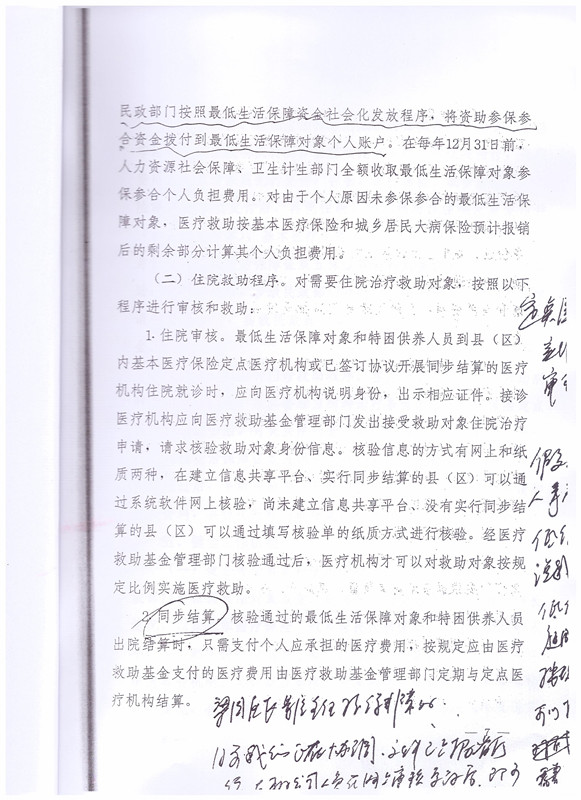 民政部门按照最低生活保障资金社会化发放程序，将资助参保参
合资金拨付到最低生活保障对象个人账户。在每年12月31日前，
人力资源社会保障、卫生计生部门全额收取最低生活保障对象参
保参合个人负担费用。对由于个人原因未参保参合的最低生活保
障对象，医疗救助按基本医疗保险和城乡居民大病保险预计报销
后的剩余部分计算其个人负担费用。
（二）住院救助程序。对需要住院治疗救助对象，按照以下
程序进行审核和救助：
1.住院审核。最低生活保障对象和特困供养人员到县（区）
内基本医疗保险定点医疗机构或已签订协议开展同步结算的医疗
机构住院就诊时，应向医疗机构说明身份，出示相应证件。接诊
医疗机构应向医疗救助基金管理部门发出接受救助对象住院治疗
申请，请求核验救助对象身份信息。核验信息的方式有网上和纸
质两种，在建立信息共享平台、实行同步结算的县（区）可以通
过系统软件网上核验，尚未建立信息共享平台、没有实行同步结
算的县（区）可以通过填写核验单的纸质方式进行核验。经医疗
救助基金管理部门核验通过后，医疗机构才可以对救助对象按规
定比例实施医疗救助。
2.同步结算。核验通过的最低生活保障对象和特困供养人员
出院结算时，只需支付个人应承担的医疗费用，按规定应由医疗
救助基金支付的医疗费用由医疗救助基金管理部门定期与定点医
疗机构结算。